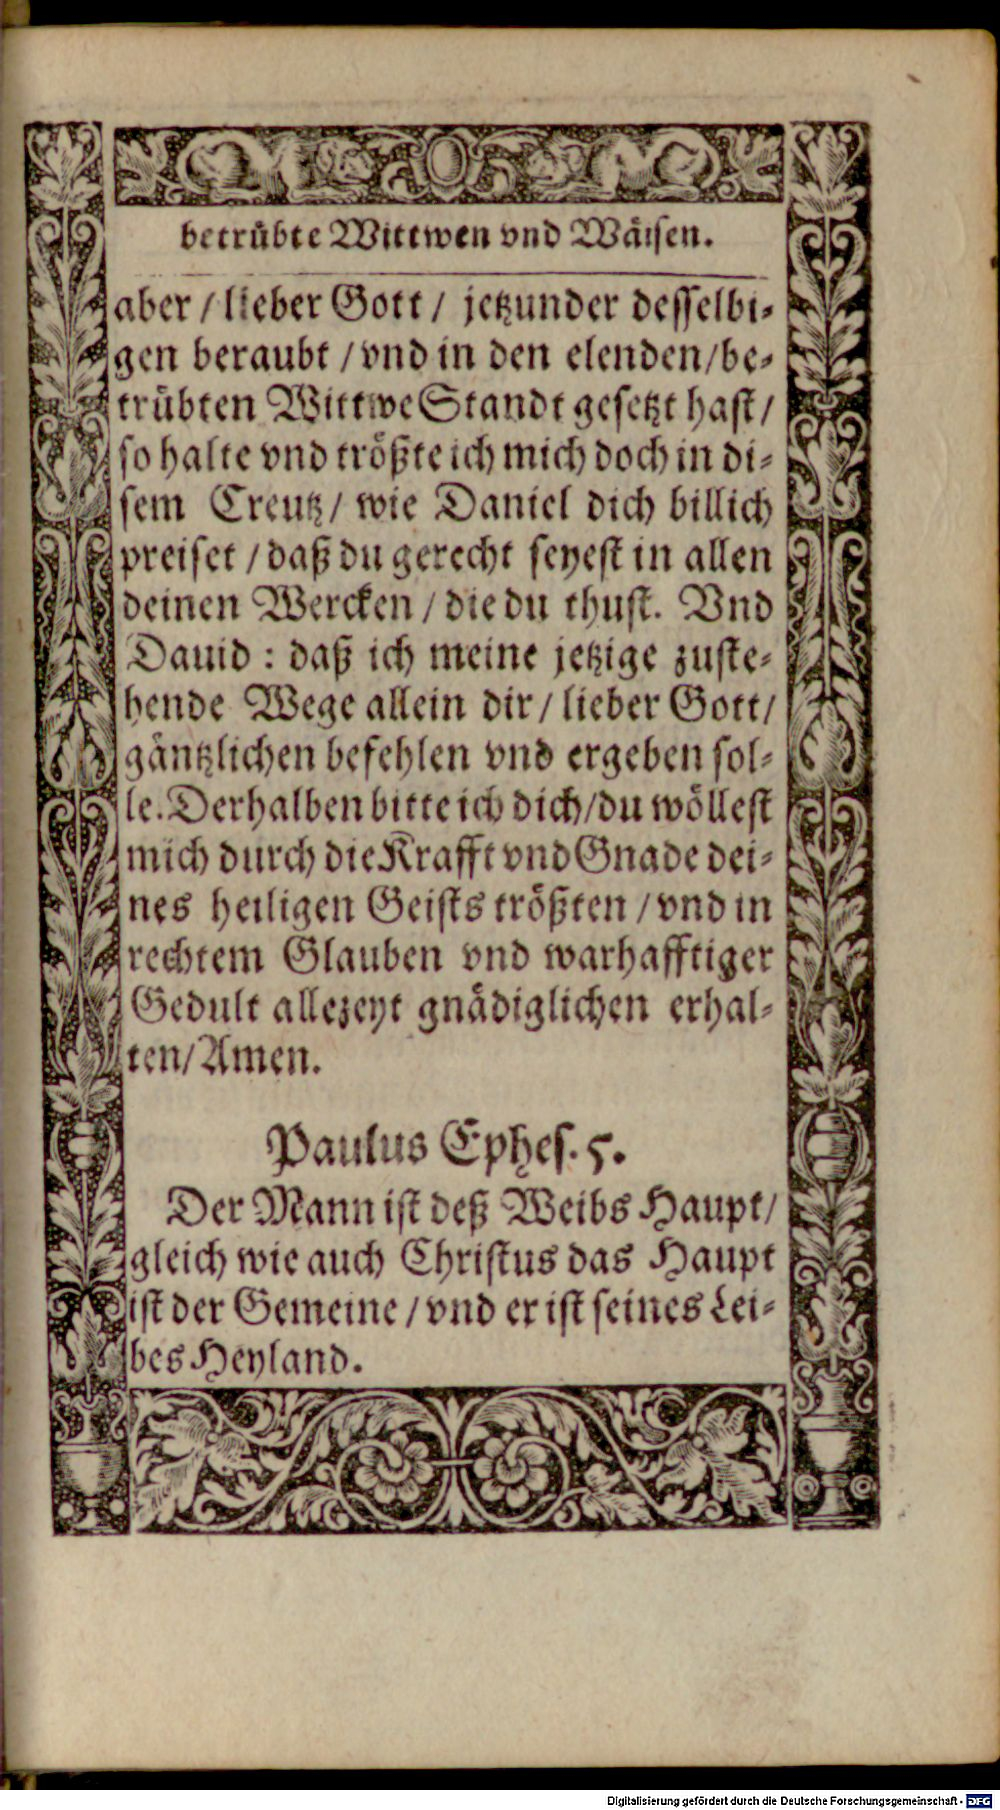 betrübte Wittwen vnd Wäisen.
aber / lieber Gott / jetzunder desselbi-
gen beraubt / vnd in den elenden / be-
trübten Wittwe Standt gesetzt hast /
so halte vnd trößte ich mich doch in di-
sem Creutz / wie Daniel dich billich
preiset / daß du gerecht seyest in allen
deinen Wercken / die du thust. Vnd
Dauid : daß ich meine jetzige zuste-
hende Wege allein dir / lieber Gott /
gäntzlichen befehlen vnd ergeben sol-
le. Derhalben bitte ich dich / du wöllest
mich durch die Krafft vnd Gnade dei-
nes heiligen Geists trößten / vnd in
rechtem Glauben vnd warhafftiger
Gedult allezeyt gnädiglichen erhal-
ten / Amen.
Paulus Ephes. 5.
Der Mann ist deß Weibs Haupt /
gleich wie auch Christus das Haupt
ist der Gemeine / vnd er ist seines Lei-
bes Heyland.
Digitalisierung gefördert durch die Deutsche Forschungsgemeinschaft - DFG